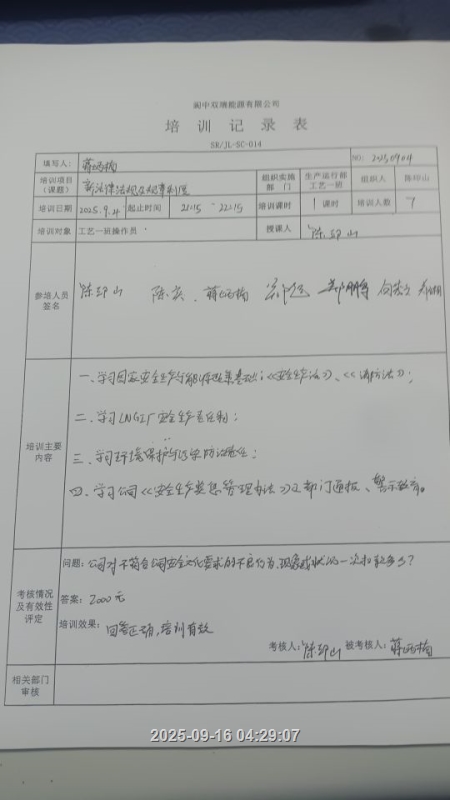 阆中双瑞能源有限公司
培训记录表
SR/JL-SC-014
填写人: NO: 20250904
培训项目(课题) 新法律法规及规章制度 组织实施部门 生产运行部工艺一班 组织人 陈印山
培训日期 2025.9.4 起止时间 21:15-22:15 培训课时 1课时 培训人数 7
培训对象 工艺一班操作员 授课人 陈印山
参培人员签名 陈印山
培训主要内容
一、学习国家安全生产《安全生产法》、《消防法》;
二、学习LNG工厂安全生产责任制;
三、学习环境保护与污染防治;
四、学习公司《安全生产奖惩管理办法》及部门通报、警示教育。
考核情况及有效性评定
问题: 公司对不符合公司安全文化要求的不良行为、现象或状况一次扣款多少?
答案: 2000元
培训效果: 回答正确,培训有效
考核人: 陈印山 被考核人:
相关部门审核
2025-09-16 04:29:07